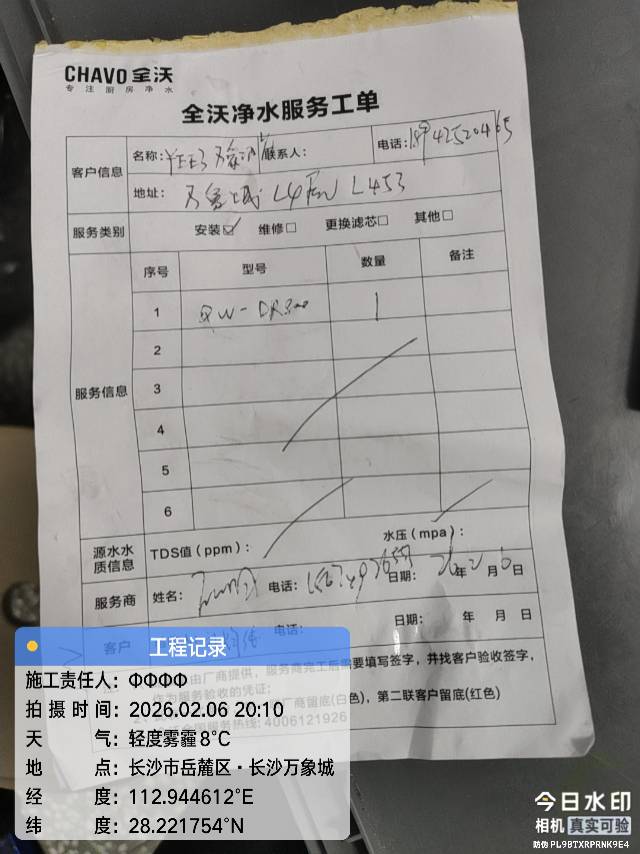 CHAVO 全沃
专注厨房净水
全沃净水服务工单
客户信息
名称：
联系人：
电话：
地址：万象城 L4 L453
服务类别
安装☑ 维修□ 更换滤芯□ 其他□
服务信息
序号 型号 数量 备注
1 QW-DR300 1
2
3
4
5
6
源水水质信息
TDS值（ppm）：
水压（mpa）：
服务商
姓名：
电话：
日期：26年2月6日
客户
电话：
日期： 年 月 日
由厂商提供，服务商完工后需要填写签字，并找客户验收签字，
作为服务验收的凭证；
厂商留底(白色)，第二联客户留底(红色)
全国服务热线：4006121926
工程记录
施工责任人：ФФФФ
拍摄时间：2026.02.06 20:10
天气：轻度雾霾 8℃
地点：长沙市岳麓区·长沙万象城
经度：112.944612°E
纬度：28.221754°N
今日水印
相机 真实可验
防伪 PL9BTXRPRNK9E4